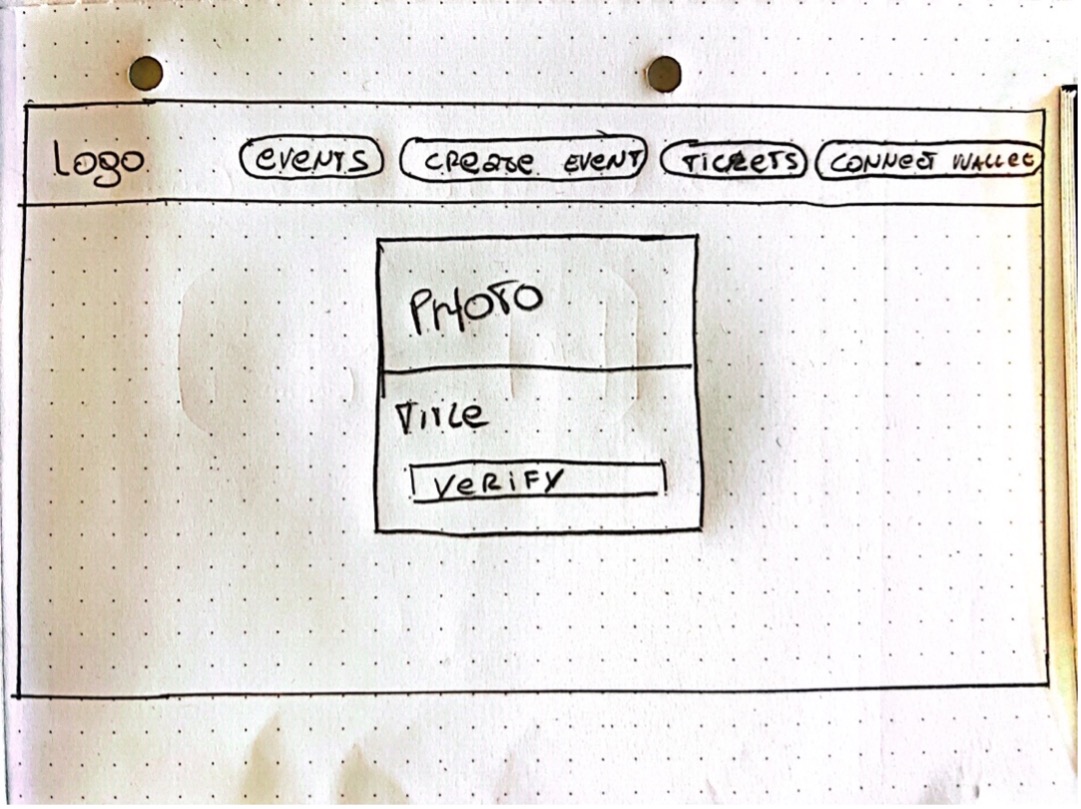 Logo
EVENTS
CREATE EVENT
TICKETS
CONNECT WALLET
PHOTO
TITLE
VERIFY